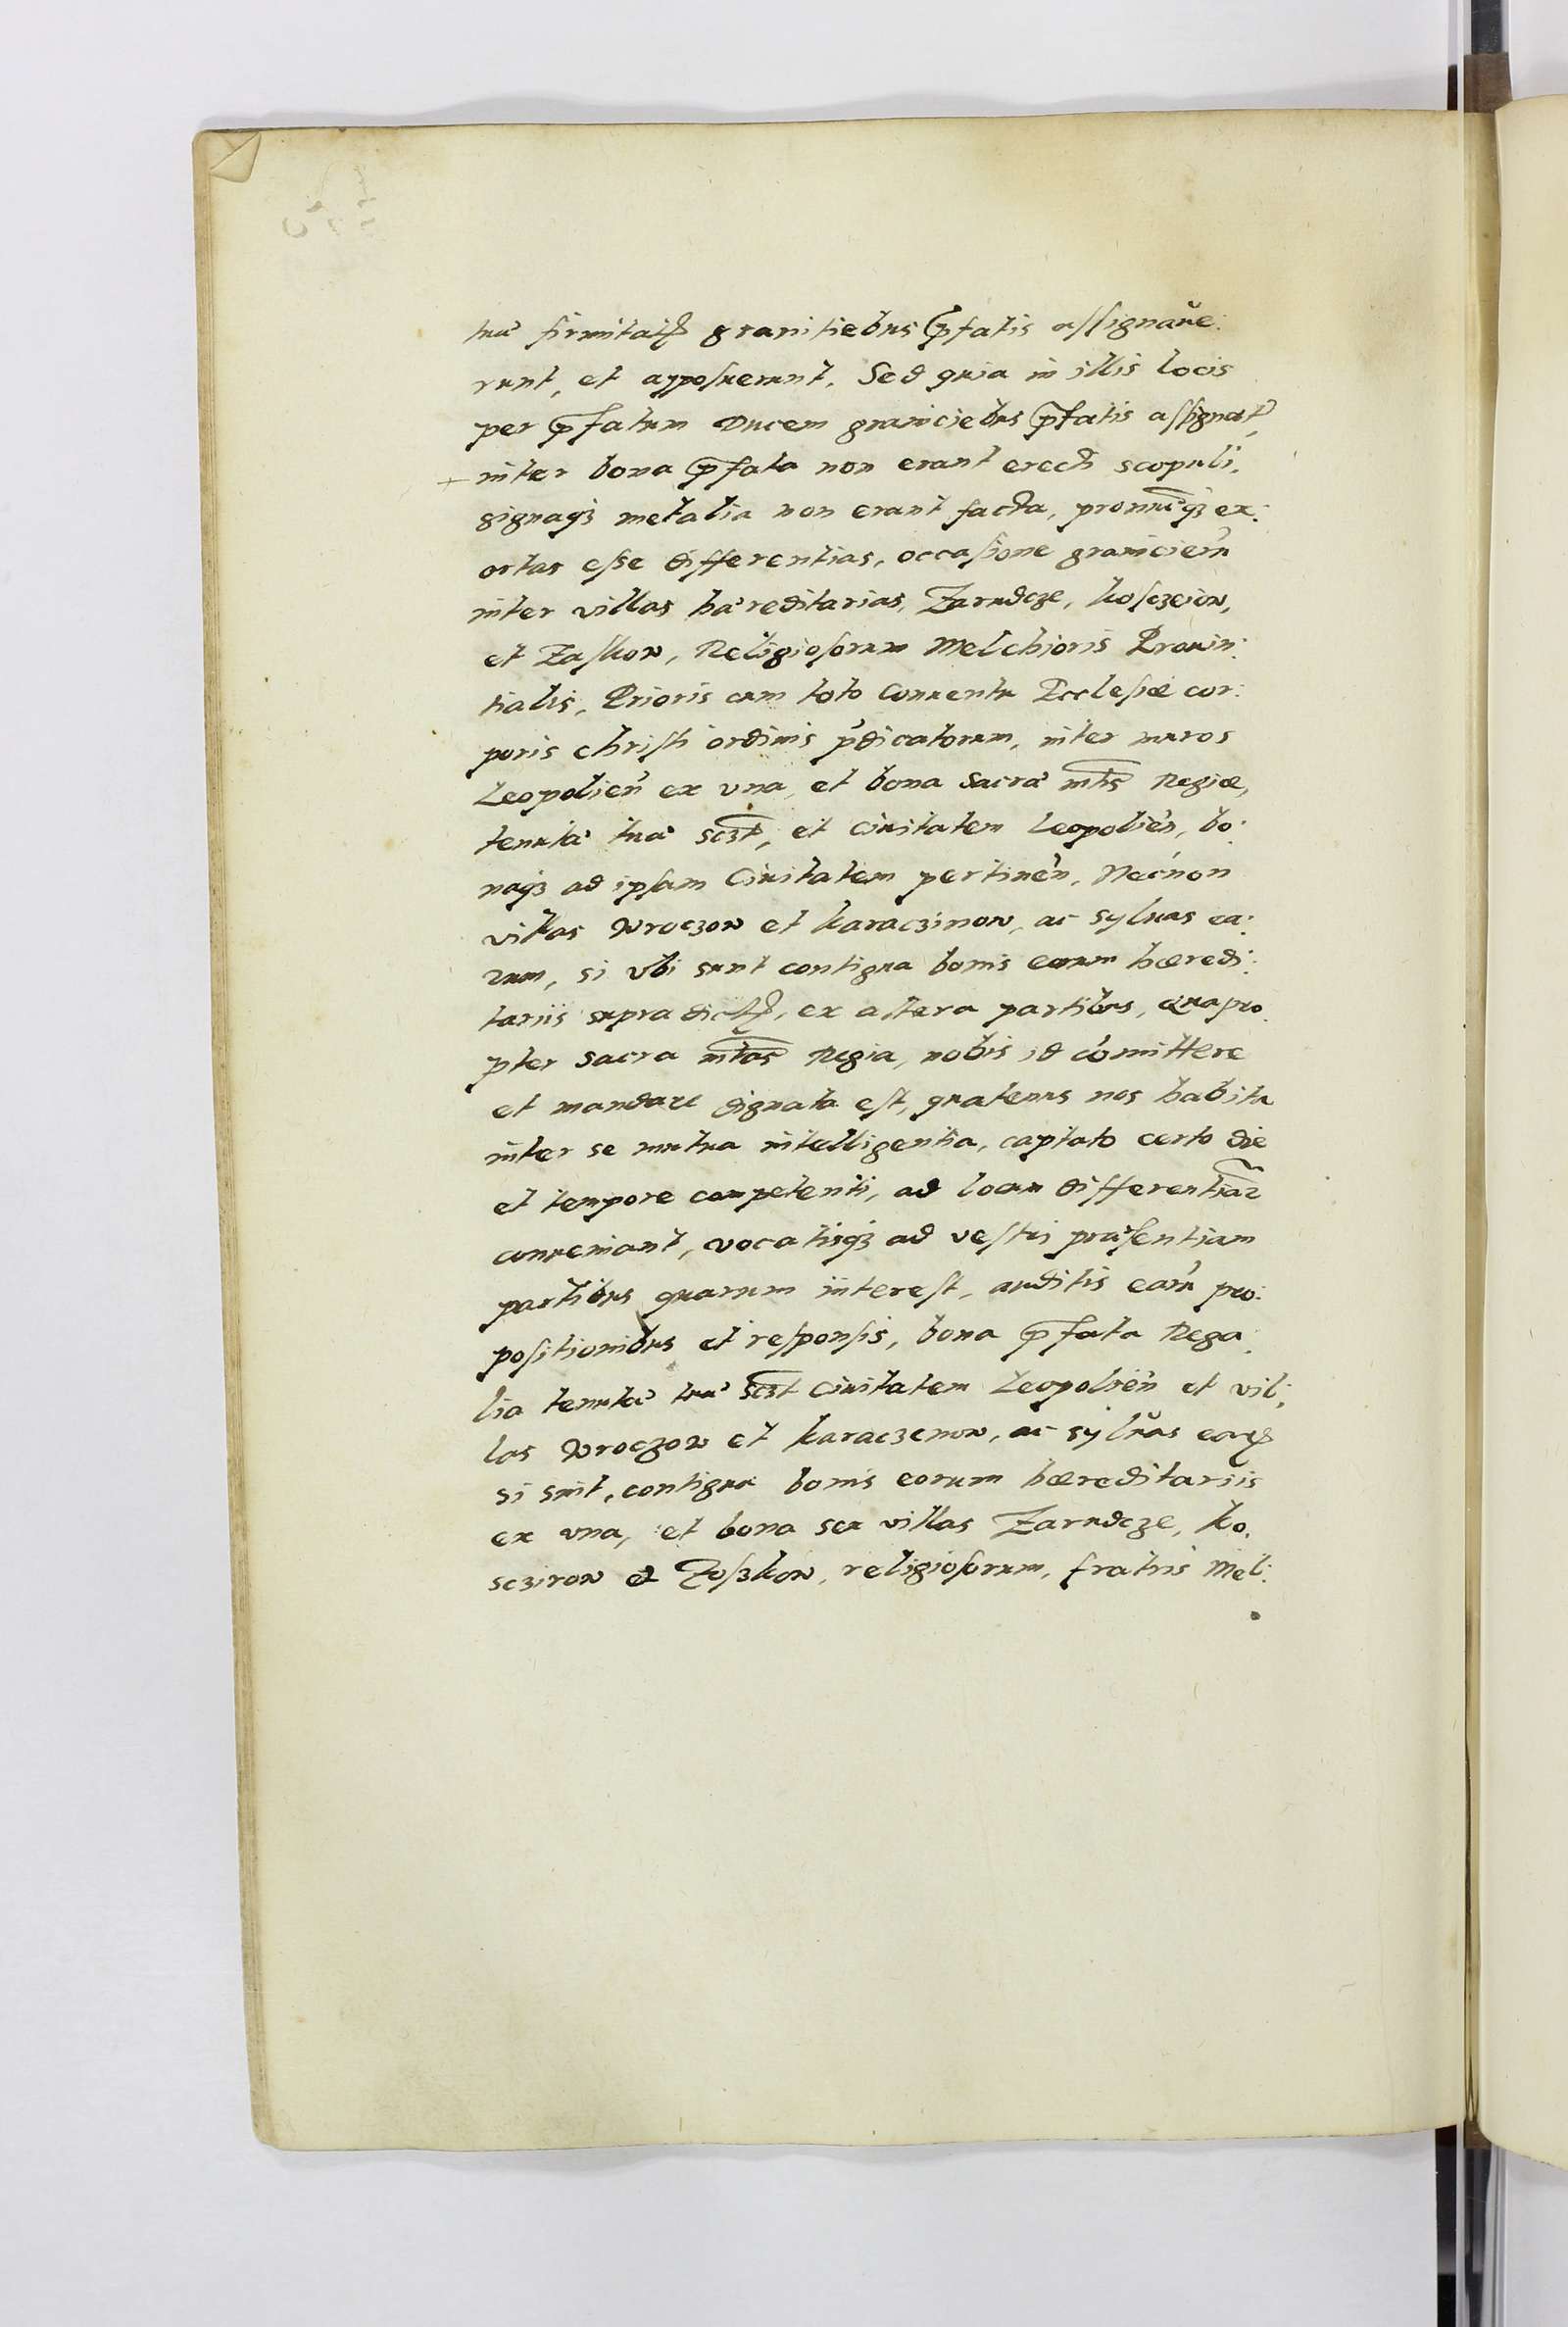 tuã firmitatꝫ granitiebus p̄fatis assignaue:
runt, et apposuerunt. Sed quia in illis locis
per p̄fatum Ducem graniciebus p̄fatis assignat̃,
inter bona p̄fata non erant erecti scopuli,
signaqꝫ metalia non erant facta, pronūcqꝫ ex:
ortas esse differentias, occasione granicierũ
inter villas hæreditarias, Zarudcze, kosczeiow,
et Zaskow, Religiosorum Melchioris Prouin:
tialis, Prioris cum toto Conuentu Ecclesiæ cor:
poris christi ordinis p̃dicatorum, inter muros
Leopolien̄ ex vna, et bona Sacrã mt̄s Regiæ,
tenutã tuã scꝫt̄, et Ciuitatem Leopolien̄, bo:
naqꝫ ad ipsam Ciuitatem pertinen̄, Necnon
villas Wroczow et karaczinow, ac syluas ea:
rum, si vbi sunt contigua bonis eorum hæredi:
tariis supra dictꝫ, ex altera partibus, quapro:
pter Sacra mt̄as Regia, nobis id cõmittere
et mandare dignata est, quatenus nos habita
inter se mutua intelligentia, captato certo die
et tempore competenti, ad locum differentiaꝝ̄
conueniant, vocatisqꝫ ad vestri præsentiam
partibus quarum interest, auditis earũ pro:
positionibus et responsis, bona p̄fata Rega:
lia tenutã tuã scꝫt̄ Ciuitatem Leopolien̄ et vil:
las Wroczow et karaczenow, ac syluas eaꝝ
si sint, contigua bonis eorum hæreditariis
ex vna, et bona seu villas Zarudcze, ko:
scziow et Zoszkow, religiosorum, fratris Mel: